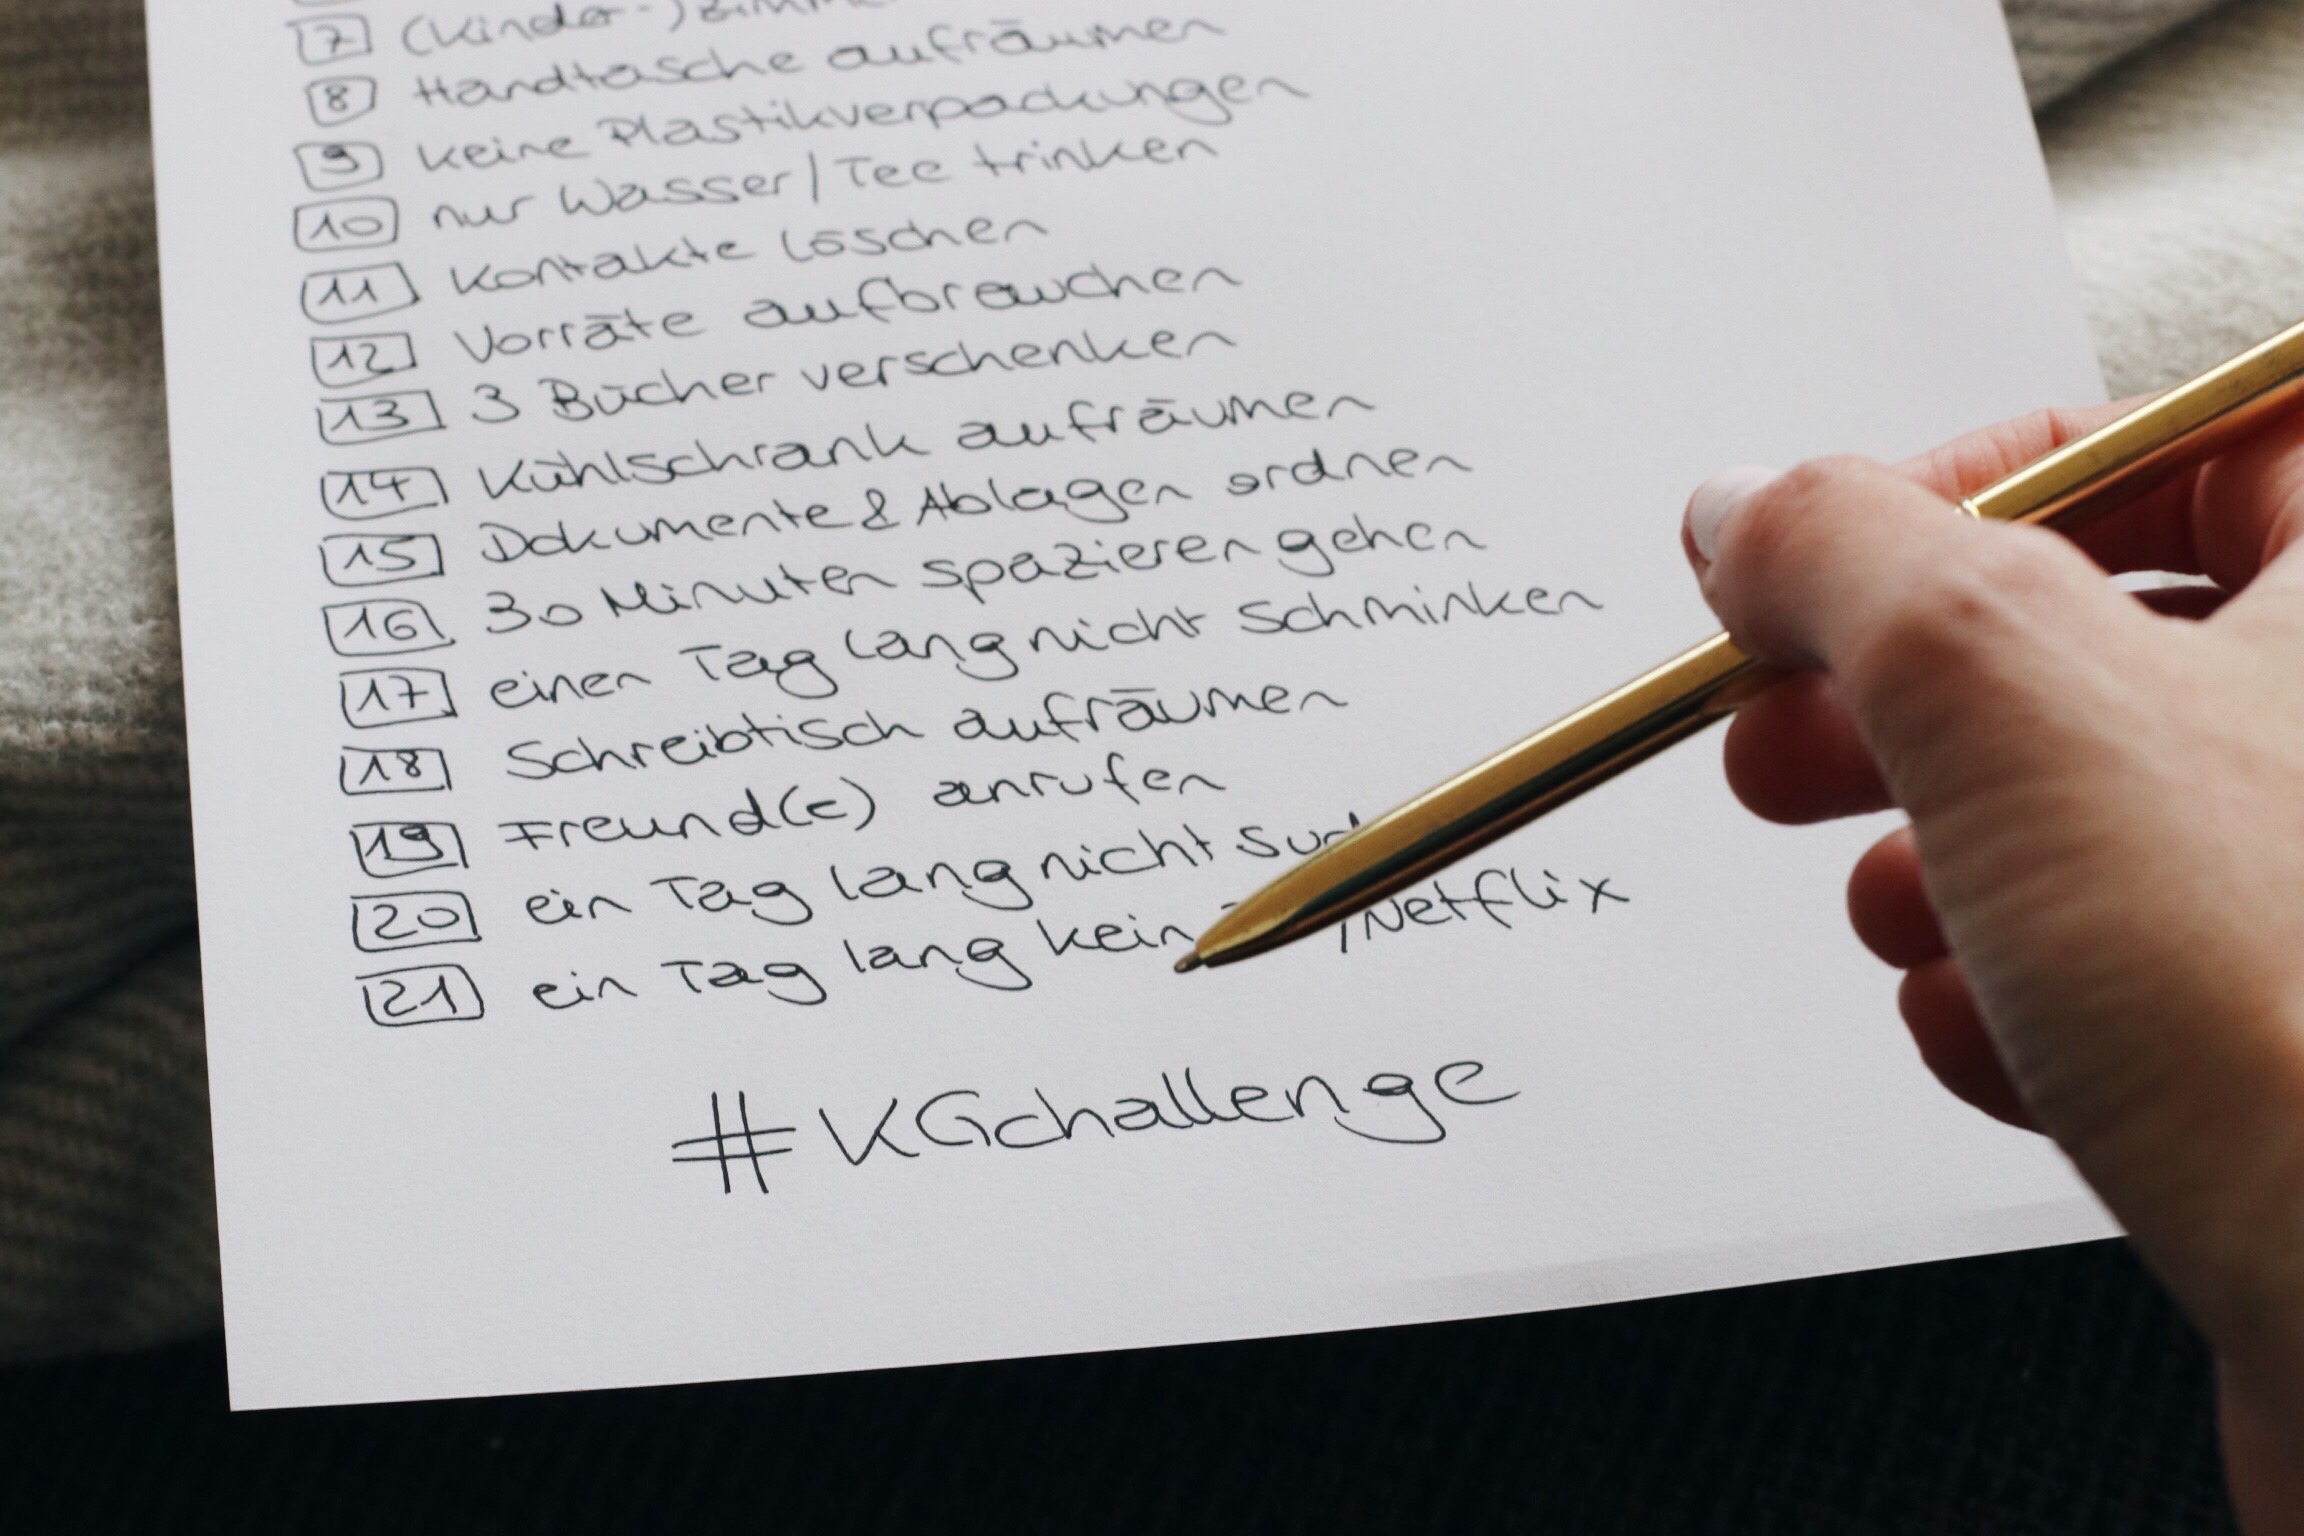 7 (Kinder-)
8 Handtasche aufräumen
9 keine Plastikverpackungen
10 nur Wasser/Tee trinken
11 Kontakte löschen
12 Vorräte aufbrauchen
13 3 Bücher verschenken
14 Kühlschrank aufräumen
15 Dokumente & Ablagen ordnen
16 30 Minuten spazieren gehen
17 einen Tag lang nicht schminken
18 Schreibtisch aufräumen
19 Freund(e) anrufen
20 ein Tag lang nicht
21 ein Tag lang kein /Netflix
#KGchallenge